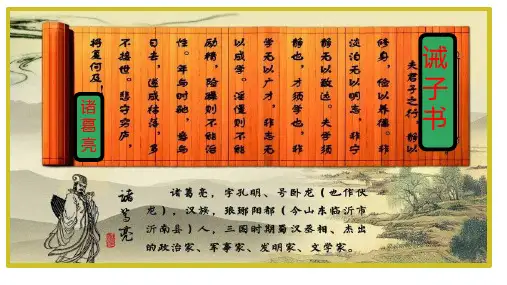 诫子书
夫君子之行,静以
修身,俭以养德。非
淡泊无以明志,非宁
静无以致远。夫学须
静也,才须学也,非
学无以广才,非志无
以成学。淫慢则不能
励精,险躁则不能治
性。年与时驰,意与
日去,遂成枯落,多
不接世。悲守穷庐,
将复何及!
诸葛亮
诸葛亮
诸葛亮,字孔明、号卧龙(也作伏
龙),汉族,琅琊阳都(今山东临沂市
沂南县)人,三国时期蜀汉丞相、杰出
的政治家、军事家、发明家、文学家。